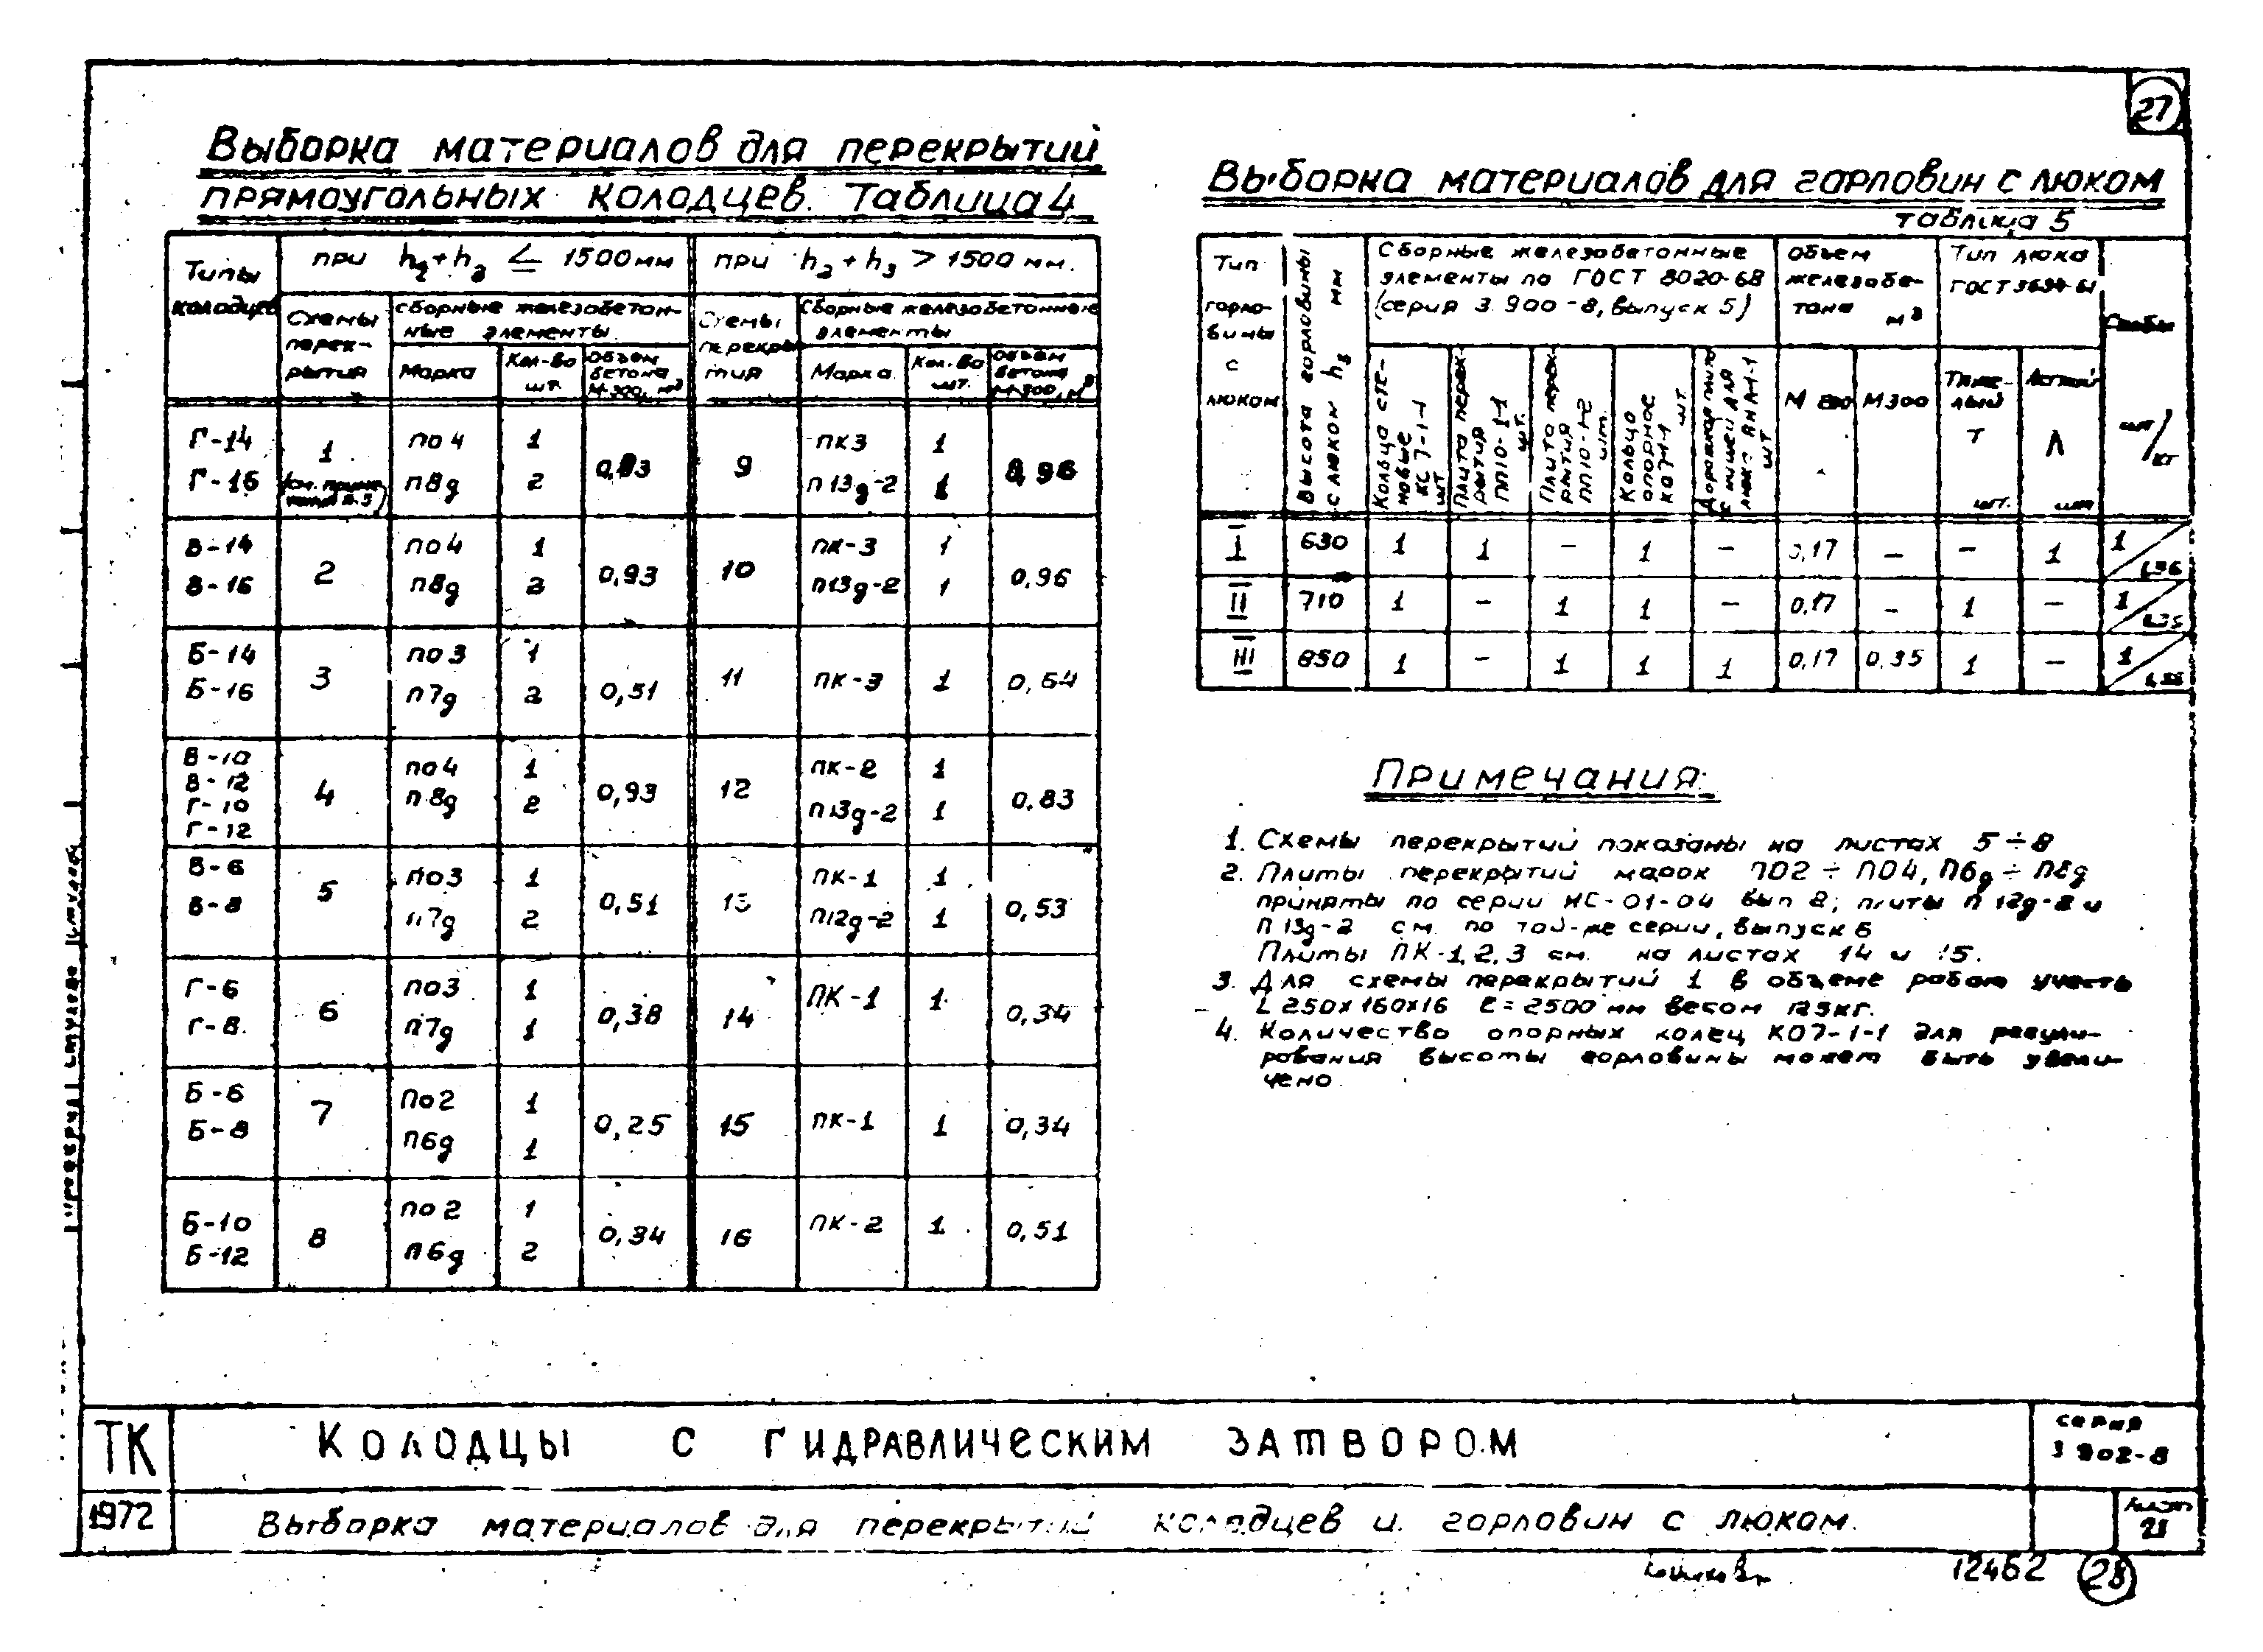 27
Выборка материалов для перекрытий
прямоугольных колодцев. Таблица 4
Типы колодцев
при h2+h3 ≤ 1500мм
при h2+h3 > 1500 мм.
Схемы перекрытия
сборные железобетонные элементы
Схемы перекрытия
Сборные железобетонные элементы
Марка
Кол-во шт.
Объем бетона М-300, м3
Марка
Кол-во шт.
Объем бетона М-300, м3
Г-14 1 по4 1 0,93 9 пк3 1 0,96
Г-16 (см. приме- п8д 2 п13д-2 1
чание п.3)
В-14 2 по4 1 0,93 10 пк-3 1 0,96
В-16 п8д 2 п13д-2 1
Б-14 3 по3 1 0,51 11 пк-3 1 0,64
Б-16 п7д 2
В-10 4 по4 1 0,93 12 пк-2 1 0,83
В-12 п8д 2 п13д-2 1
Г-10
Г-12
В-6 5 по3 1 0,51 13 пк-1 1 0,53
В-8 п7д 2 п12д-2 1
Г-6 6 по3 1 0,38 14 ПК-1 1 0,34
Г-8 п7д 1
Б-6 7 по2 1 0,25 15 пк-1 1 0,34
Б-8 п6д 1
Б-10 8 по2 1 0,34 16 пк-2 1 0,51
Б-12 п6д 2
Выборка материалов для горловин с люком
таблица 5
Тип горловины с люком
Высота горловины с люком h3 мм
Сборные железобетонные
элементы по ГОСТ 8020-68
(серия 3.900-8, выпуск 5)
Объем железобетона м3
Тип люка
ГОСТ 3634-61
Скобы
Кольца стеновые КС7-1-1 шт
Плита перекрытия ПП10-1-1 шт.
Плита перекрытия ПП10-1-2 шт.
Кольцо опорное КО7-1-1 шт
М М300
Тяжелый Т шт.
Легкий Л шт
шт/кг
I 630 1 1 – 1 – 0,17 – – 1 1/
II 710 1 – 1 1 – 0,17 – 1 – 1/
III 850 1 – 1 1 1 0,17 0,35 1 – 1/
Примечания:
1. Схемы перекрытий показаны на листах 5÷8
2. Плиты перекрытий марок ПО2 ÷ ПО4, П6д ÷ П8д
приняты по серии ИС-01-04 вып 2; плиты П 12д-2 и
П 13д-2 см. по той-же серии, выпуск 6
Плиты ПК-1,2,3 см. на листах 14 и 15.
3. Для схемы перекрытий 1 в объеме работ учесть
L 250х160х16 ℓ=2500 мм весом 125кг.
4. Количество опорных колец КО7-1-1 для регули-
рования высоты горловины может быть увели-
чено.
ТК
Колодцы с гидравлическим затвором
серия
3 902-8
1972
Выборка материалов для перекрытий колодцев и горловин с люком.
Лист
21
12462 28